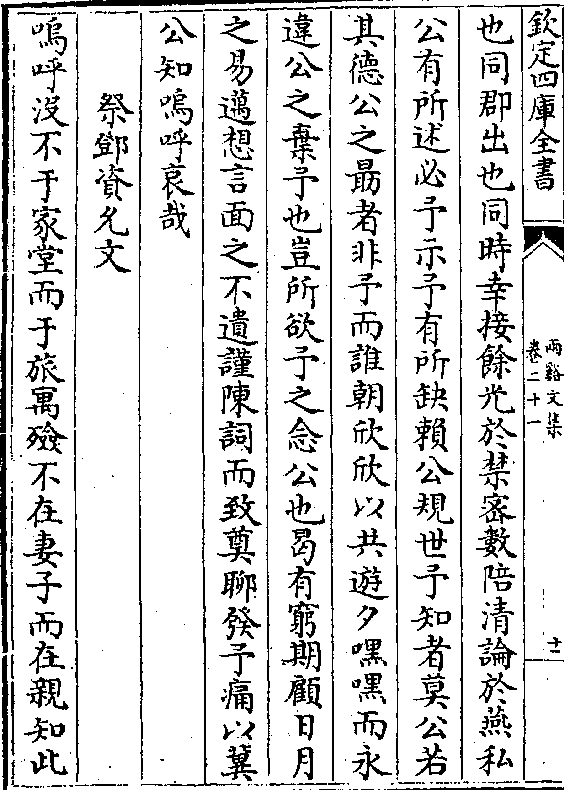 欽定四庫全書
兩谿文集
卷二十一
十一
也同郡出也同時幸接餘光於禁密數陪清論於燕私
公有所述必予示予有所缺賴公規世予知者莫公若
其德公之最者非予而誰朝欣欣以共遊夕嘿嘿而永
違公之棄予也豈所欲予之念公也曷有窮期顧日月
之易邁想言面之不遺謹陳詞而致奠聊發予痛以冀
公知嗚呼哀哉
祭鄧資允文
嗚呼沒不于家堂而于旅寓殮不在妻子而在親知此